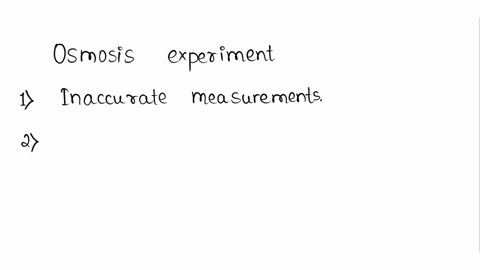 Osmosis experiment
1) Inaccurate measurements.
2)